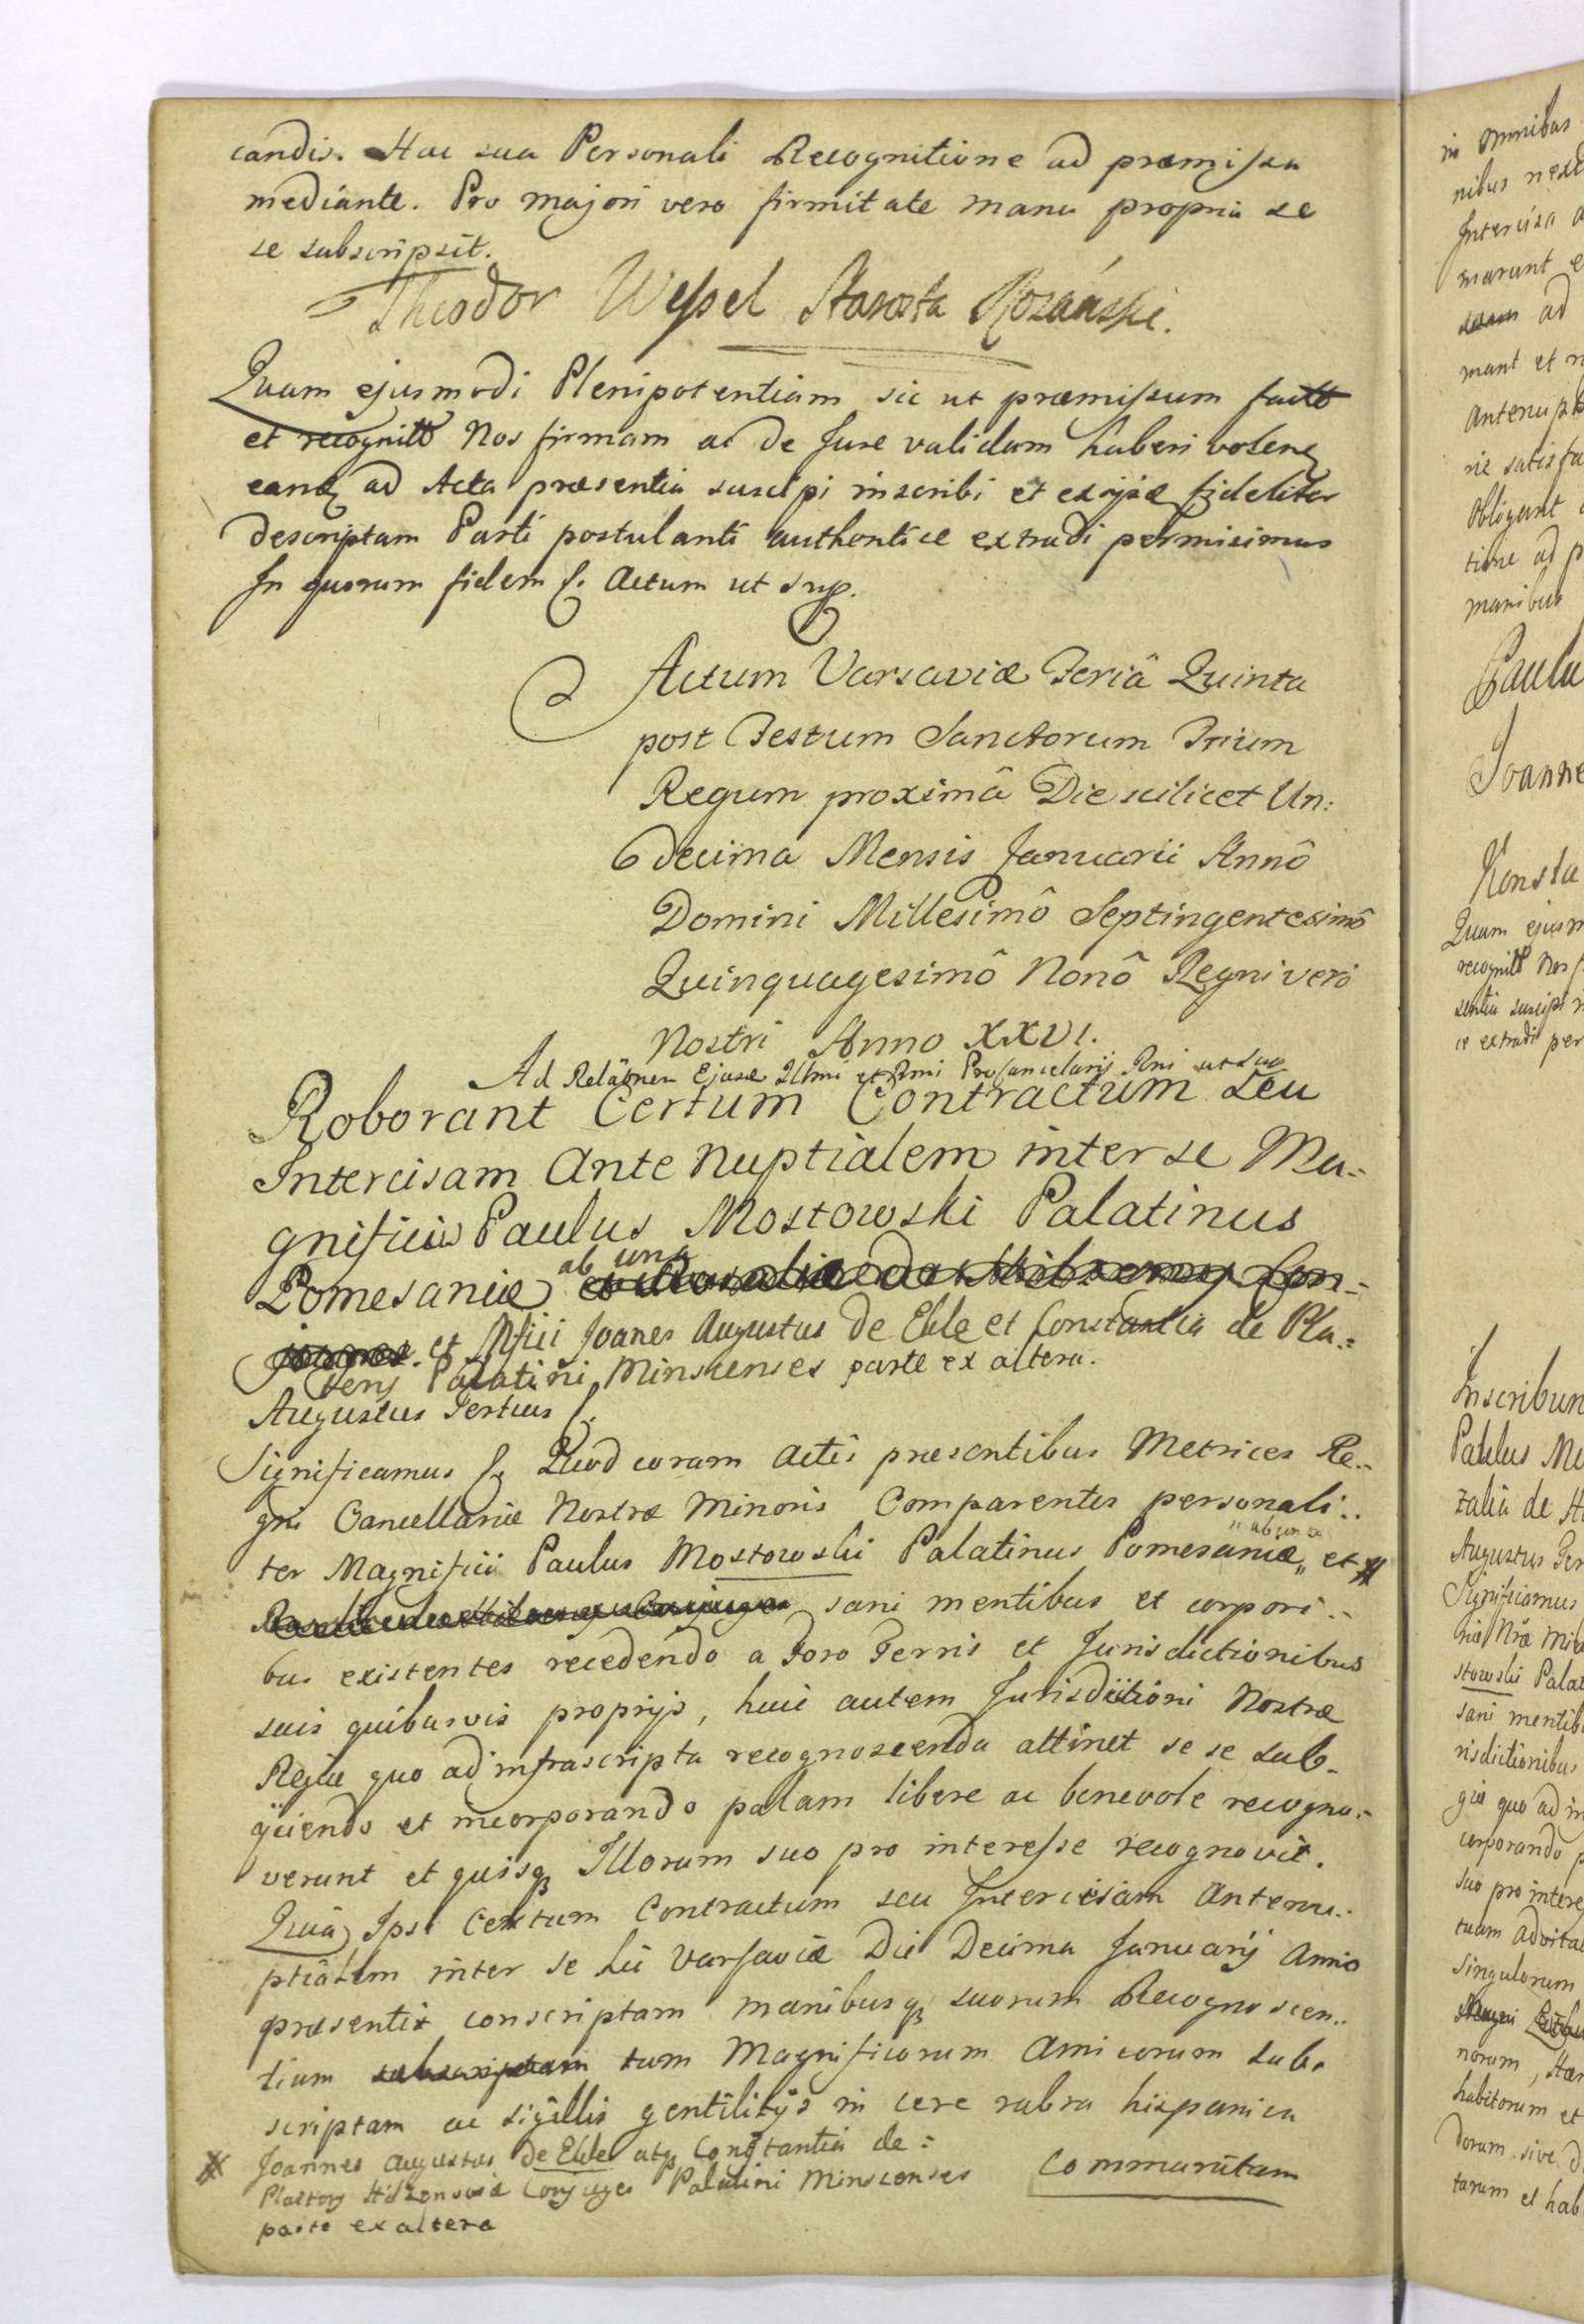 candis. Hac sua Personali Recognitione ad præmissa
mediante. Pro majori vero firmitate manu propria se
se subscripsit.
Theodor Wessel Starosta Rozański.
Quam ejusmodi Plenipotentiam sic ut præmissum
et Nos firmam ac de Jure validam haberi
ad Acta præsentia suscipi inscribi et fideliter
descriptam Parti postulanti authentice extradi permisimus
In quorum fidem Actum ut sup.
Actum Varsaviæ Feriâ Quinta
post Festum Sanctorum Trium
Regum proximâ Die scilicet Un:
decima Mensis Januarii Annô
Domini Millesimô Septingentesimô
Quinquagesimô Nonô Regni verò
Nostri Anno XXVI.
Ad Ejusd Illmi et Rmi Procancelarij Rni ut sup
Roborant Certum Contractum seu
Intercisam Ante nuptialem inter se Ma-
gnificus Paulus Mostowski Palatinus
Pomesaniæ ab una
et Mfici Joanes Augustus De Eble et Constantia de Pla:
Palatini Minscenses parte ex altera.
Augustus Tertius
Significamus Quod coram Actis præsentibus Metrices Re-
gni Cancellariæ Nostræ Minoris Comparentes personali:
ter Magnificii Paulus Mostowski Palatinus Pomesaniæ „ ab una „ et #
sani mentibus et corpori:
bus existentes recedendo a Foro Terris et Jurisdictionibus
suis quibusvis proprijs, huic autem Jurisdictioni Nostræ
Regiæ quo ad infrascripta recognoscenda attinet se se sub-
ijciendo et incorporando palam libere ac benevole recogno:
verunt et quisq Illorum suo pro interesse recognovit.
Quia Ipsi Certum Contractum seu Intercisam Antenu:
ptialem inter se hic Varsaviæ Die Decima Januarij Anno
præsenti conscriptam manibusq suorum Recognoscen:
tium subscriptam tum Magnificorum Amicorum sub-
scriptam ac sigillis gentilitijs in cera rubra hispanica
# Joannes Augustus De Eble atq Constantia de:
Conjuges Palatini Minscenses
parte ex altera
Communitam
in omnibus
nibus
Intercisa
marunt
ad
mant et
Antenup
rie satisfa
Obligant
tione ad p
manibus
Paulu
Joanne
Konsta
Quam ejusm
sentia suscipi
extradi per
Inscribun
Paulus Mo
zalia de
Augustus Ter
Significamus
stowski Palat
sani mentib
risdictionibus
giæ quo ad in
corporando p
suo pro intere
tuam advital
Singulorum
norum,
habitorum et
Dorum sive D
tarum et hab